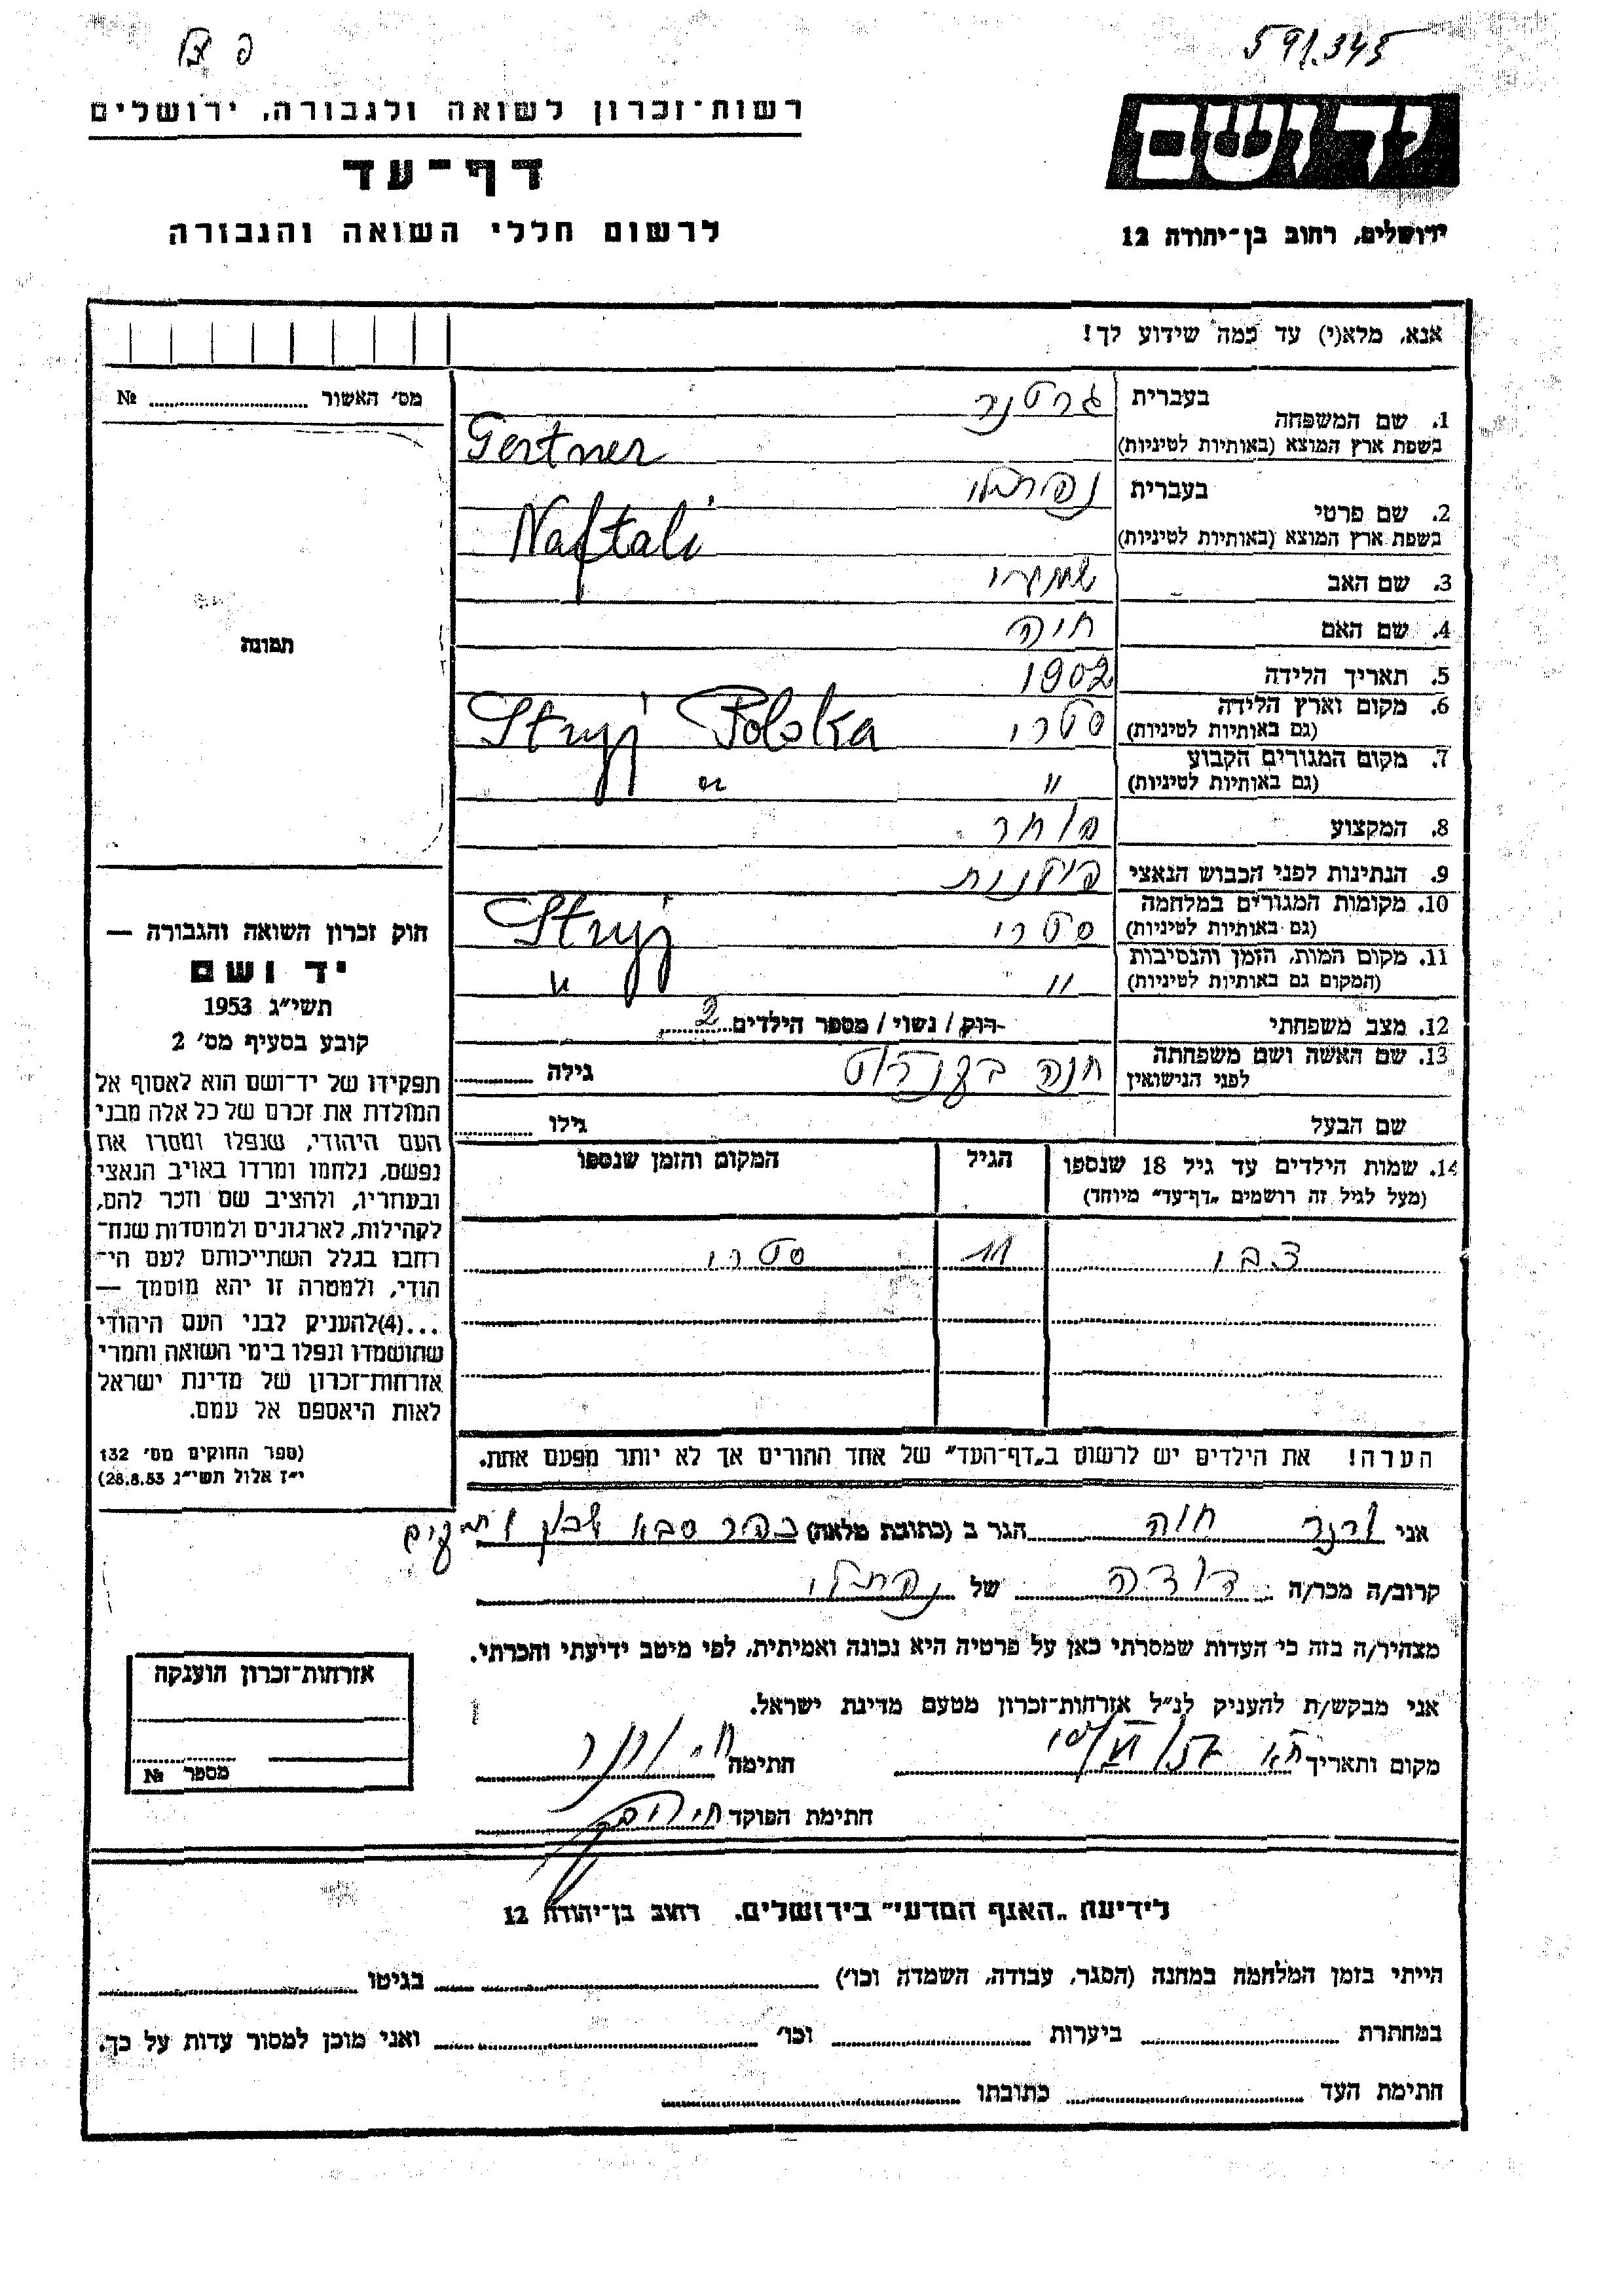 591.345
יד ושם
ירושלים, רחוב בן-יהודה 12
רשות-זכרון לשואה ולגבורה, ירושלים
דף-עד
לרשום חללי השואה והגבורה
אנא, מלא(י) עד כמה שידוע לך!
מס' האשור № ........
תמונה
1. שם המשפחה בעברית גרטנר
בשפת ארץ המוצא (באותיות לטיניות) Gertner
2. שם פרטי בעברית נפתלי
בשפת ארץ המוצא (באותיות לטיניות) Naftali
3. שם האב
4. שם האם חיה
5. תאריך הלידה 1902
6. מקום וארץ הלידה (גם באותיות לטיניות) סטרי Stryj Polska
7. מקום המגורים הקבוע (גם באותיות לטיניות) " "
8. המקצוע סוחר
9. הנתינות לפני הכבוש הנאצי פולנית
10. מקומות המגורים במלחמה (גם באותיות לטיניות) סטרי Stryj
11. מקום המות, הזמן והנסיבות (המקום גם באותיות לטיניות) " "
12. מצב משפחתי רוק / נשוי / מספר הילדים 2
13. שם האשה ושם משפחתה לפני הנישואין חנה גילה ........
שם הבעל גילו ........
14. שמות הילדים עד גיל 18 שנספו הגיל המקום והזמן שנספו
(מעל לגיל זה רושמים "דף-עד" מיוחד)
צבי 11 סטרי
הערה! את הילדים יש לרשום ב"דף-העד" של אחד ההורים אך לא יותר מפעם אחת.
חוק זכרון השואה והגבורה —
יד ושם
תשי"ג 1953
קובע בסעיף מס' 2
תפקידו של יד-ושם הוא לאסוף אל
המולדת את זכרם של כל אלה מבני
העם היהודי, שנפלו ומסרו את
נפשם, נלחמו ומרדו באויב הנאצי
ובעוזריו, ולהציב שם וזכר להם,
לקהילות, לארגונים ולמוסדות שנח-
רחבו בגלל השתייכותם לעם הי-
הודי, ולמטרה זו יהא מוסמך —
...(4)להעניק לבני העם היהודי
שהושמדו ונפלו בימי השואה והמרי
אזרחות-זכרון של מדינת ישראל
לאות היאספם אל עמם.
(ספר החוקים מס' 132
י"ז אלול תשי"ג 28.8.53)
אני חוה הגר ב (כתובת מלאה) כפר סבא שכון ותיקים
קרוב/ה מכר/ה דודה של נפתלי
מצהיר/ה בזה כי העדות שמסרתי כאן על פרטיה היא נכונה ואמיתית, לפי מיטב ידיעתי והכרתי.
אני מבקש/ת להעניק לנ"ל אזרחות-זכרון מטעם מדינת ישראל.
מקום ותאריך חתימה
חתימת הפוקד
אזרחות-זכרון הוענקה
מספר №
לידיעת "האגף המדעי" בירושלים, רחוב בן-יהודה 12
הייתי בזמן המלחמה במחנה (הסגר, עבודה, השמדה וכו') ........ בגיטו ........
במחתרת ........ ביערות ........ וכו' ........ ואני מוכן למסור עדות על כך.
חתימת העד ........ כתובתו ........